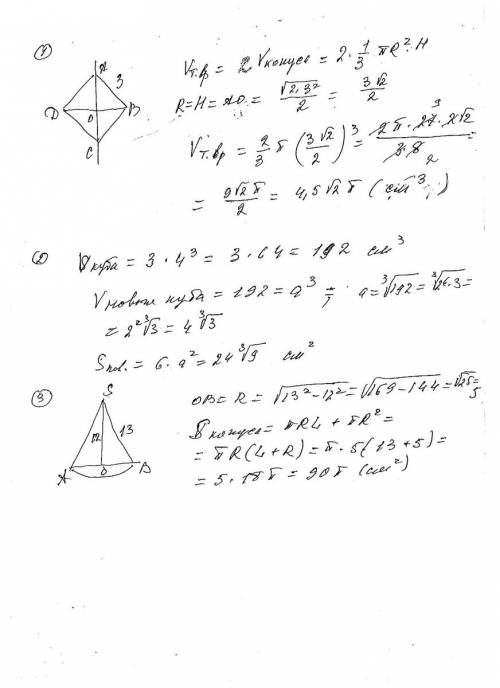 1
A
3
D O B
C
Vт.вр = 2 Vконуса = 2 · 1/3 πR² · H
R = H = AO = √(2·3²)/2 = 3√2/2
Vт.вр = 2/3 π (3√2/2)³ = 2π · 27 · 2√2 / 3·8 =
9
2
= 9√2π/2 = 4,5√2π (см³)
2
Vкуба = 3 · 4³ = 3 · 64 = 192 см³
Vнового куба = 192 = a³ ; a = ³√192 = ³√2⁶·3 =
= 2² ³√3 = 4 ³√3
Sпов. = 6 · a² = 24 ³√9 см²
3
S
12 13
A O B
OB = R = √(13² − 12²) = √(169 − 144) = √25 = 5
Sконуса = πRL + πR² =
= πR(L + R) = π · 5(13 + 5) =
= 5 · 18π = 90π (см²)